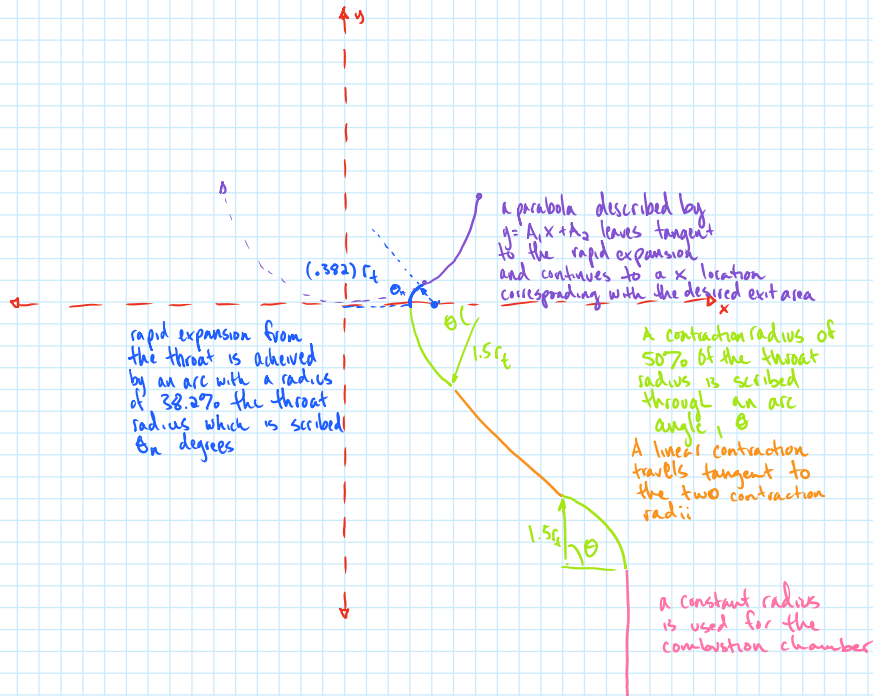 y
a parabola described by
y= A₁x+A₂ leaves tangent
to the rapid expansion
and continues to a x location
corresponding with the desired exit area
x
(.382) rₜ
θₙ
rapid expansion from
the throat is acheived
by an arc with a radius
of 38.2% the throat
radius which is scribed
θₙ degrees
θ
1.5rₜ
A contraction radius of
50% of the throat
radius is scribed
through an arc
angle, θ
A linear contraction
travels tangent to
the two contraction
radii
1.5rₜ
θ
a constant radius
is used for the
combustion chamber